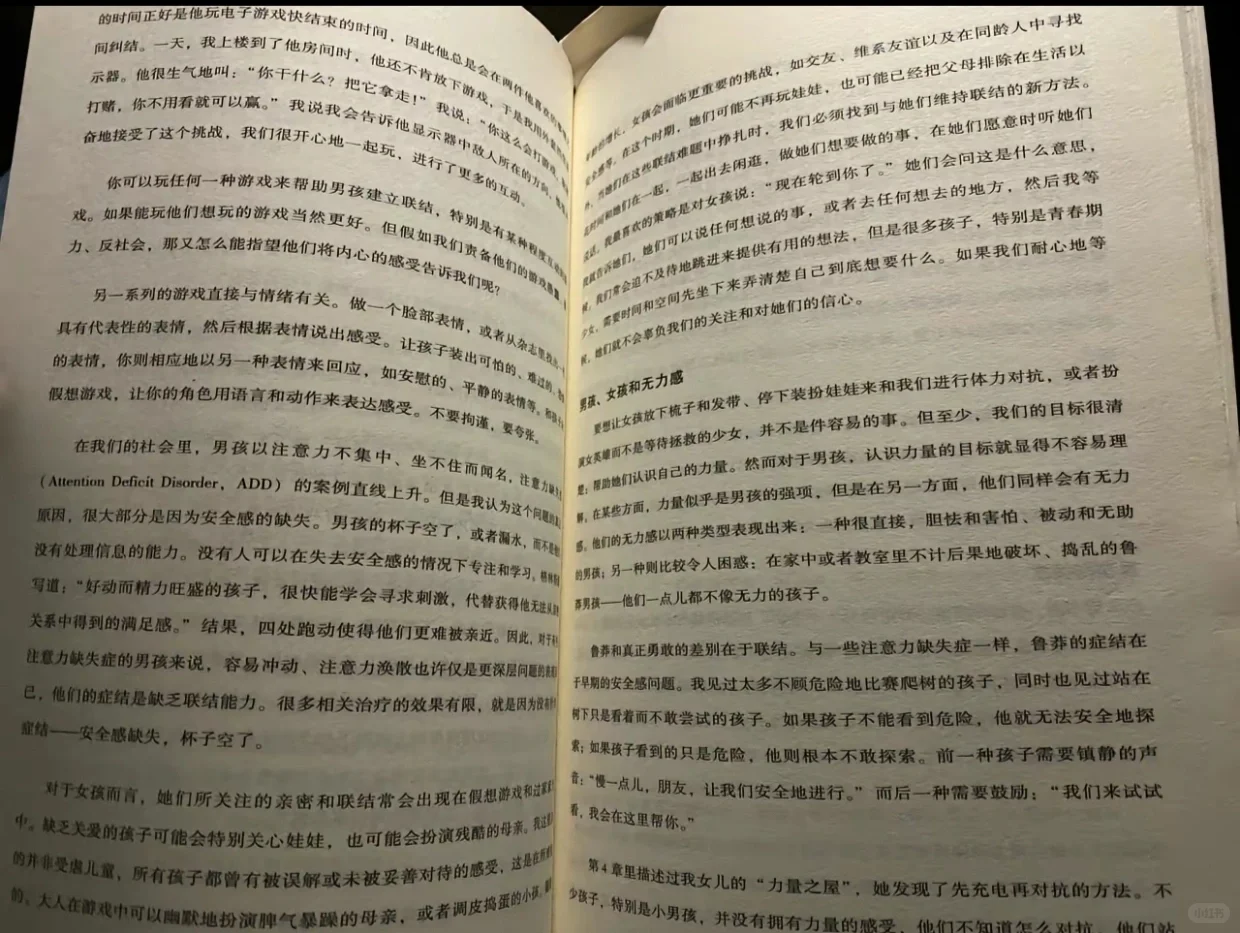 的时间正好是他玩电子游戏快结束的时间，因此他总是会在两件他喜欢的
间纠结。一天，我上楼到了他房间时，他还不肯放下游戏，于是我用
示器。他很生气地叫：“你干什么？把它拿走！”我说：“你这么会打游戏，
打赌，你不用看就可以赢。”我说我会告诉他显示器中敌人所在的方向，
奋地接受了这个挑战，我们很开心地一起玩，进行了更多的互动。
你可以玩任何一种游戏来帮助男孩建立联结，特别是有某种程度互动的
戏。如果能玩他们想玩的游戏当然更好。但假如我们责备他们的游戏
力、反社会，那又怎么能指望他们将内心的感受告诉我们呢？
另一系列的游戏直接与情绪有关。做一个脸部表情，或者从杂志里找出
具有代表性的表情，然后根据表情说出感受。让孩子装出可怕的、难过的、
的表情，你则相应地以另一种表情来回应，如安慰的、平静的表情等。和孩子
假想游戏，让你的角色用语言和动作来表达感受。不要拘谨，要夸张。
在我们的社会里，男孩以注意力不集中、坐不住而闻名，注意力缺
(Attention Deficit Disorder，ADD）的案例直线上升。但是我认为这个问题的
原因，很大部分是因为安全感的缺失。男孩的杯子空了，或者漏水，而不是
没有处理信息的能力。没有人可以在失去安全感的情况下专注和学习。
写道：“好动而精力旺盛的孩子，很快能学会寻求刺激，代替获得他无法从
关系中得到的满足感。”结果，四处跑动使得他们更难被亲近。因此，对于
注意力缺失症的男孩来说，容易冲动、注意力涣散也许仅是更深层问题的
已，他们的症结是缺乏联结能力。很多相关治疗的效果有限，就是因为没有
症结——安全感缺失，杯子空了。
对于女孩而言，她们所关注的亲密和联结常会出现在假想游戏和过家家
中。缺乏关爱的孩子可能会特别关心娃娃，也可能会扮演残酷的母亲。我这里
的并非受虐儿童，所有孩子都曾有被误解或未被妥善对待的感受，这是在所
的。大人在游戏中可以幽默地扮演脾气暴躁的母亲，或者调皮捣蛋的小孩，
年龄的增长，女孩会面临更重要的挑战，如交友、维系友谊以及在同龄人中寻找
安全感等。在这个时期，她们可能不再玩娃娃，也可能已经把父母排除在生活以
外。当她们在这些联结难题中挣扎时，我们必须找到与她们维持联结的新方法。
花时间和她们在一起，一起出去闲逛，做她们想要做的事，在她们愿意时听她们
说话。我最喜欢的策略是对女孩说：“现在轮到你了。”她们会问这是什么意思，
我就告诉她们，她们可以说任何想说的事，或者去任何想去的地方，然后我等
候。我们常会迫不及待地跳进来提供有用的想法，但是很多孩子，特别是青春期
少女，需要时间和空间先坐下来弄清楚自己到底想要什么。如果我们耐心地等
候，她们就不会辜负我们的关注和对她们的信心。
男孩、女孩和无力感
要想让女孩放下梳子和发带、停下装扮娃娃来和我们进行体力对抗，或者扮
演女英雄而不是等待拯救的少女，并不是件容易的事。但至少，我们的目标很清
楚：帮助她们认识自己的力量。然而对于男孩，认识力量的目标就显得不容易理
解。在某些方面，力量似乎是男孩的强项，但是在另一方面，他们同样会有无力
感。他们的无力感以两种类型表现出来：一种很直接，胆怯和害怕、被动和无助
的男孩；另一种则比较令人困惑：在家中或者教室里不计后果地破坏、捣乱的鲁
莽男孩——他们一点儿都不像无力的孩子。
鲁莽和真正勇敢的差别在于联结。与一些注意力缺失症一样，鲁莽的症结在
于早期的安全感问题。我见过太多不顾危险地比赛爬树的孩子，同时也见过站在
树下只是看着而不敢尝试的孩子。如果孩子不能看到危险，他就无法安全地探
索；如果孩子看到的只是危险，他则根本不敢探索。前一种孩子需要镇静的声
音：“慢一点儿，朋友，让我们安全地进行。”而后一种需要鼓励：“我们来试试
看，我会在这里帮你。”
第4章里描述过我女儿的“力量之屋”，她发现了先充电再对抗的方法。不
少孩子，特别是小男孩，并没有拥有力量的感受，他们不知道怎么对抗，他们站
小红书